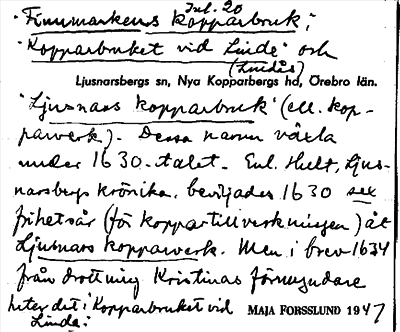 Jul. 20
'Finnmarkens kopparbruk';
'Kopparbruket vid Linde' och
(Lindås)
Ljusnarsbergs sn, Nya Kopparbergs hd, Örebro län.
'Ljusnars kopparbruk' (ell. kop-
parverk). Dessa namn växla
under 1630-talet. Enl. Hult, Ljus-
narsbergs krönika, beviljades 1630 sex
frihetsår (för koppartillverkningen) åt
Ljusnars kopparverk. Men i brev 1634
från drottning Kristinas förmyndare
heter det: 'Kopparbruket vid MAJA FORSSLUND 1947
Linde: